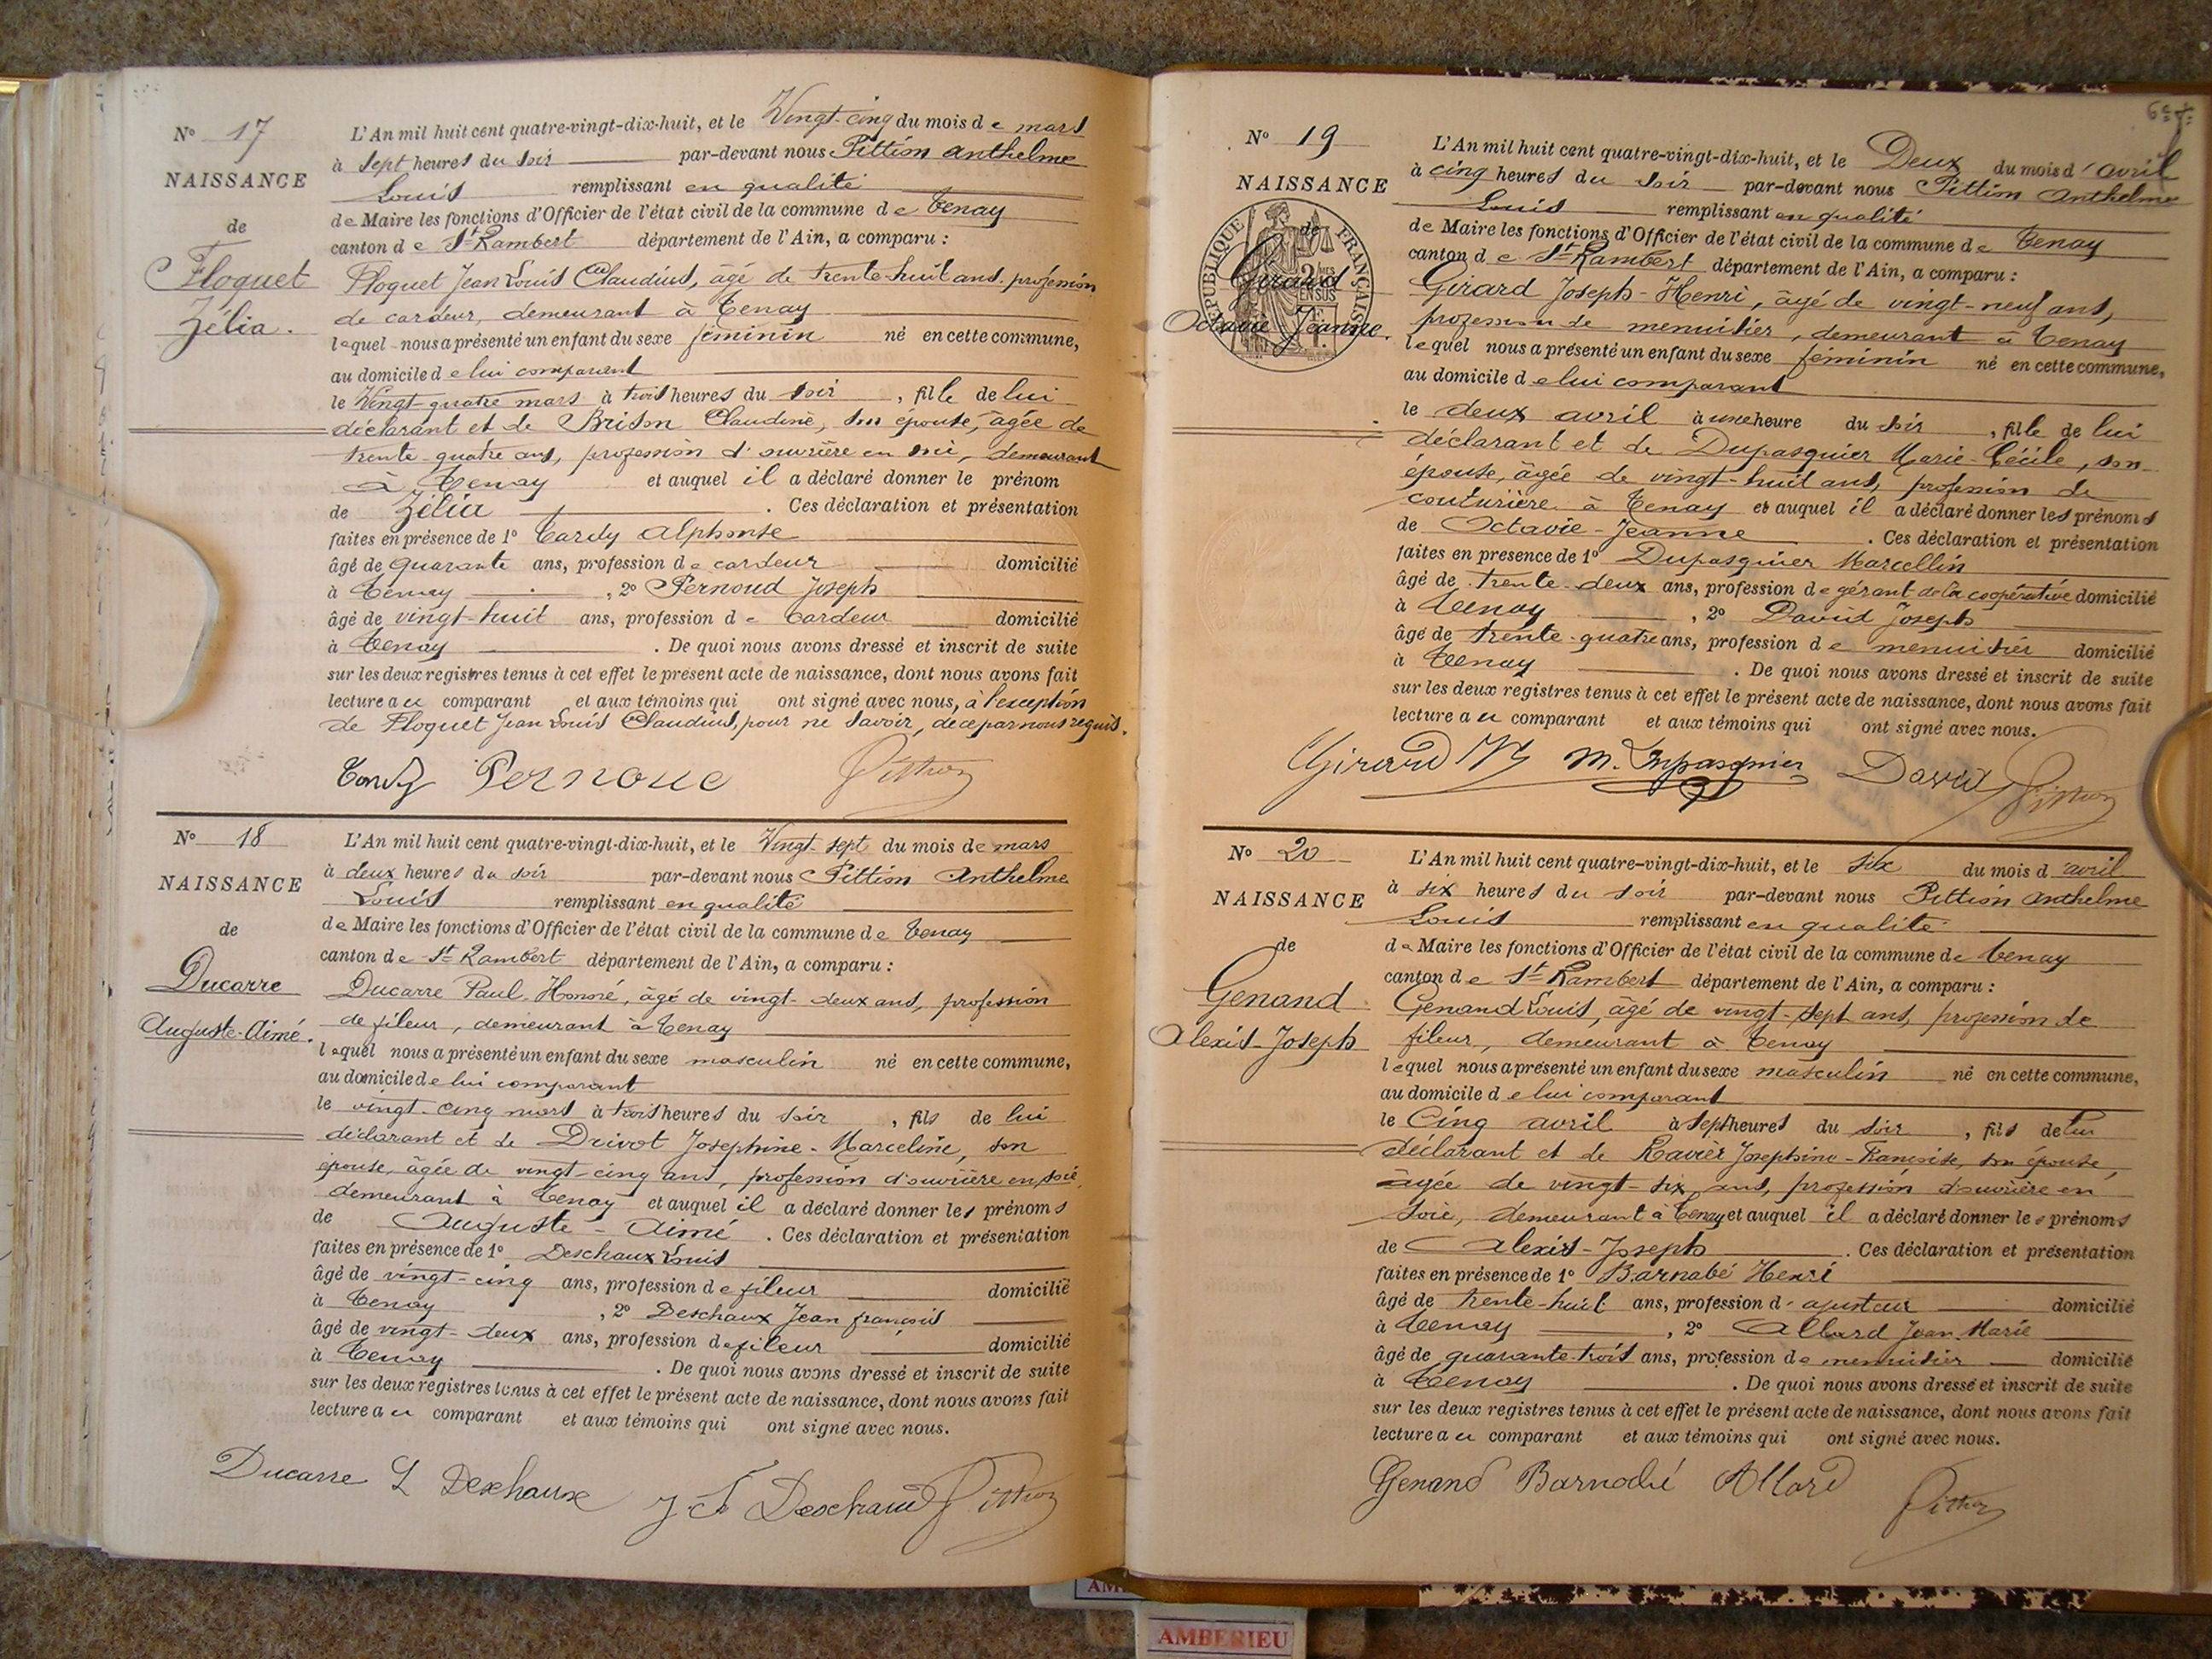 N° 17
NAISSANCE
de
Floquet
Zélia.
L'An mil huit cent quatre-vingt-dix-huit, et le Vingt-cinq du mois de mars
à sept heures du soir par-devant nous Pittion Anthelme
Louis remplissant en qualité
de Maire les fonctions d'Officier de l'état civil de la commune de Tenay
canton de St Rambert département de l'Ain, a comparu :
Floquet Jean Louis Claudius, âgé de trente-huit ans, profession
de cardeur, demeurant à Tenay
lequel nous a présenté un enfant du sexe féminin né en cette commune,
au domicile de lui comparant
le Vingt-quatre mars à trois heures du soir, fille de lui
déclarant et de Brison Claudine, son épouse, âgée de
trente-quatre ans, profession d'ouvrière en soie, demeurant
à Tenay et auquel il a déclaré donner le prénom
de Zélia. Ces déclaration et présentation
faites en présence de 1° Tardy Alphonse
âgé de quarante ans, profession de cardeur domicilié
à Tenay, 2° Pernoud Joseph
âgé de vingt-huit ans, profession de Cardeur domicilié
à Tenay. De quoi nous avons dressé et inscrit de suite
sur les deux registres tenus à cet effet le présent acte de naissance, dont nous avons fait
lecture au comparant et aux témoins qui ont signé avec nous, à l'exception
de Floquet Jean Louis Claudius, pour ne savoir, de ce par nous requis.
Tardy Pernoud Pittion
N° 18
NAISSANCE
de
Ducarre
Auguste-Aimé.
L'An mil huit cent quatre-vingt-dix-huit, et le Vingt-sept du mois de mars
à deux heures du soir par-devant nous Pittion Anthelme
Louis remplissant en qualité
de Maire les fonctions d'Officier de l'état civil de la commune de Tenay
canton de St Rambert département de l'Ain, a comparu :
Ducarre Paul-Honoré, âgé de vingt-deux ans, profession
de fileur, demeurant à Tenay
lequel nous a présenté un enfant du sexe masculin né en cette commune,
au domicile de lui comparant
le vingt-cinq mars à trois heures du soir, fils de lui
déclarant et de Drivot Josephine-Marceline, son
épouse, âgée de vingt-cinq ans, profession d'ouvrière en soie,
demeurant à Tenay et auquel il a déclaré donner les prénoms
de Auguste-Aimé. Ces déclaration et présentation
faites en présence de 1° Deschaux Louis
âgé de vingt-cinq ans, profession de fileur domicilié
à Tenay, 2° Deschaux Jean françois
âgé de vingt-deux ans, profession de fileur domicilié
à Tenay. De quoi nous avons dressé et inscrit de suite
sur les deux registres tenus à cet effet le présent acte de naissance, dont nous avons fait
lecture au comparant et aux témoins qui ont signé avec nous.
Ducarre L Deschaux J. F Deschaux Pittion
6e f.
N° 19
NAISSANCE
de
Girard
Octavie-Jeanne.
RÉPUBLIQUE FRANÇAISE
L'An mil huit cent quatre-vingt-dix-huit, et le Deux du mois d'avril
à cinq heures du soir par-devant nous Pittion Anthelme
Louis remplissant en qualité
de Maire les fonctions d'Officier de l'état civil de la commune de Tenay
canton de St Rambert département de l'Ain, a comparu :
Girard Joseph-Henri, âgé de vingt-neuf ans,
profession de menuisier, demeurant à Tenay
lequel nous a présenté un enfant du sexe féminin né en cette commune,
au domicile de lui comparant
le deux avril à une heure du soir, fille de lui
déclarant et de Dupasquier Marie-Cécile, son
épouse, âgée de vingt-huit ans, profession de
couturière à Tenay et auquel il a déclaré donner les prénoms
de Octavie-Jeanne. Ces déclaration et présentation
faites en présence de 1° Dupasquier Marcellin
âgé de trente-deux ans, profession de gérant de la coopérative domicilié
à Tenay, 2° David Joseph
âgé de trente-quatre ans, profession de menuisier domicilié
à Tenay. De quoi nous avons dressé et inscrit de suite
sur les deux registres tenus à cet effet le présent acte de naissance, dont nous avons fait
lecture au comparant et aux témoins qui ont signé avec nous.
Girard M. Dupasquier David Pittion
N° 20
NAISSANCE
de
Genand
Alexis-Joseph
L'An mil huit cent quatre-vingt-dix-huit, et le six du mois d'avril
à six heures du soir par-devant nous Pittion Anthelme
Louis remplissant en qualité
de Maire les fonctions d'Officier de l'état civil de la commune de Tenay
canton de St Rambert département de l'Ain, a comparu :
Genand Louis, âgé de vingt-sept ans, profession de
fileur, demeurant à Tenay
lequel nous a présenté un enfant du sexe masculin né en cette commune,
au domicile de lui comparant
le Cinq avril à sept heures du soir, fils de lui
déclarant et de Ravier Josephine-Françoise, son épouse,
âgée de vingt-six ans, profession d'ouvrière en
soie, demeurant à Tenay et auquel il a déclaré donner les prénoms
de Alexis-Joseph. Ces déclaration et présentation
faites en présence de 1° Barnabé Henri
âgé de trente-huit ans, profession d'ajusteur domicilié
à Tenay, 2° Allard Jean-Marie
âgé de quarante-trois ans, profession de menuisier domicilié
à Tenay. De quoi nous avons dressé et inscrit de suite
sur les deux registres tenus à cet effet le présent acte de naissance, dont nous avons fait
lecture au comparant et aux témoins qui ont signé avec nous.
Genand Barnabé Allard Pittion
AMBERIEU